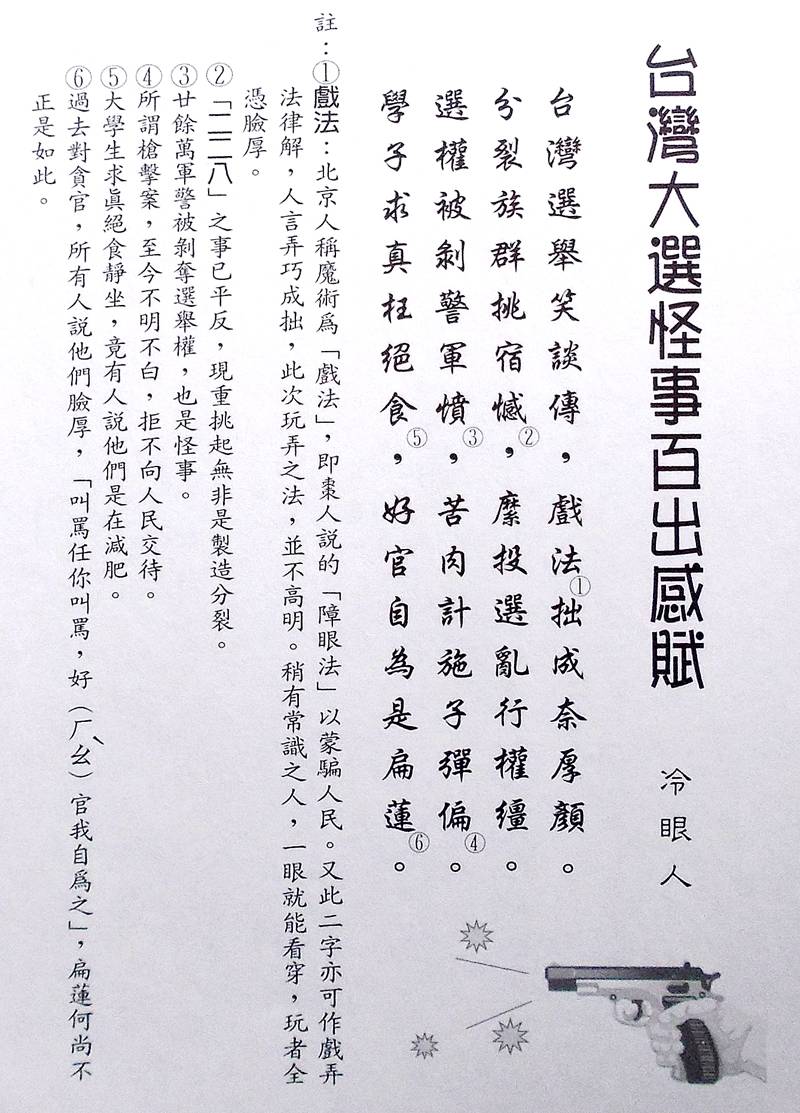 台灣大選怪事百出感賦
冷眼人
台灣選舉笑談傳，戲法①拙成奈厚顏。
分裂族群挑宿憾②，縻投選亂行權繮。
選權被剝警軍憤③，苦肉計施子彈偏④。
學子求真枉絕食⑤，好官自為是扁蓮⑥。
註：①戲法：北京人稱魔術爲「戲法」，即棗人說的「障眼法」以蒙騙人民。又此二字亦可作戲弄
法律解，人言弄巧成拙，此次玩弄之法，並不高明。稍有常識之人，一眼就能看穿，玩者全
憑臉厚。
②「二二八」之事已平反，現重挑起無非是製造分裂。
③廿餘萬軍警被剝奪選舉權，也是怪事。
④所謂槍擊案，至今不明不白，拒不向人民交待。
⑤大學生求眞絕食靜坐，竟有人說他們是在減肥。
⑥過去對貪官，所有人說他們臉厚，「叫罵任你叫罵，好（ㄏㄠˋ）官我自爲之」，扁蓮何尚不
正是如此。